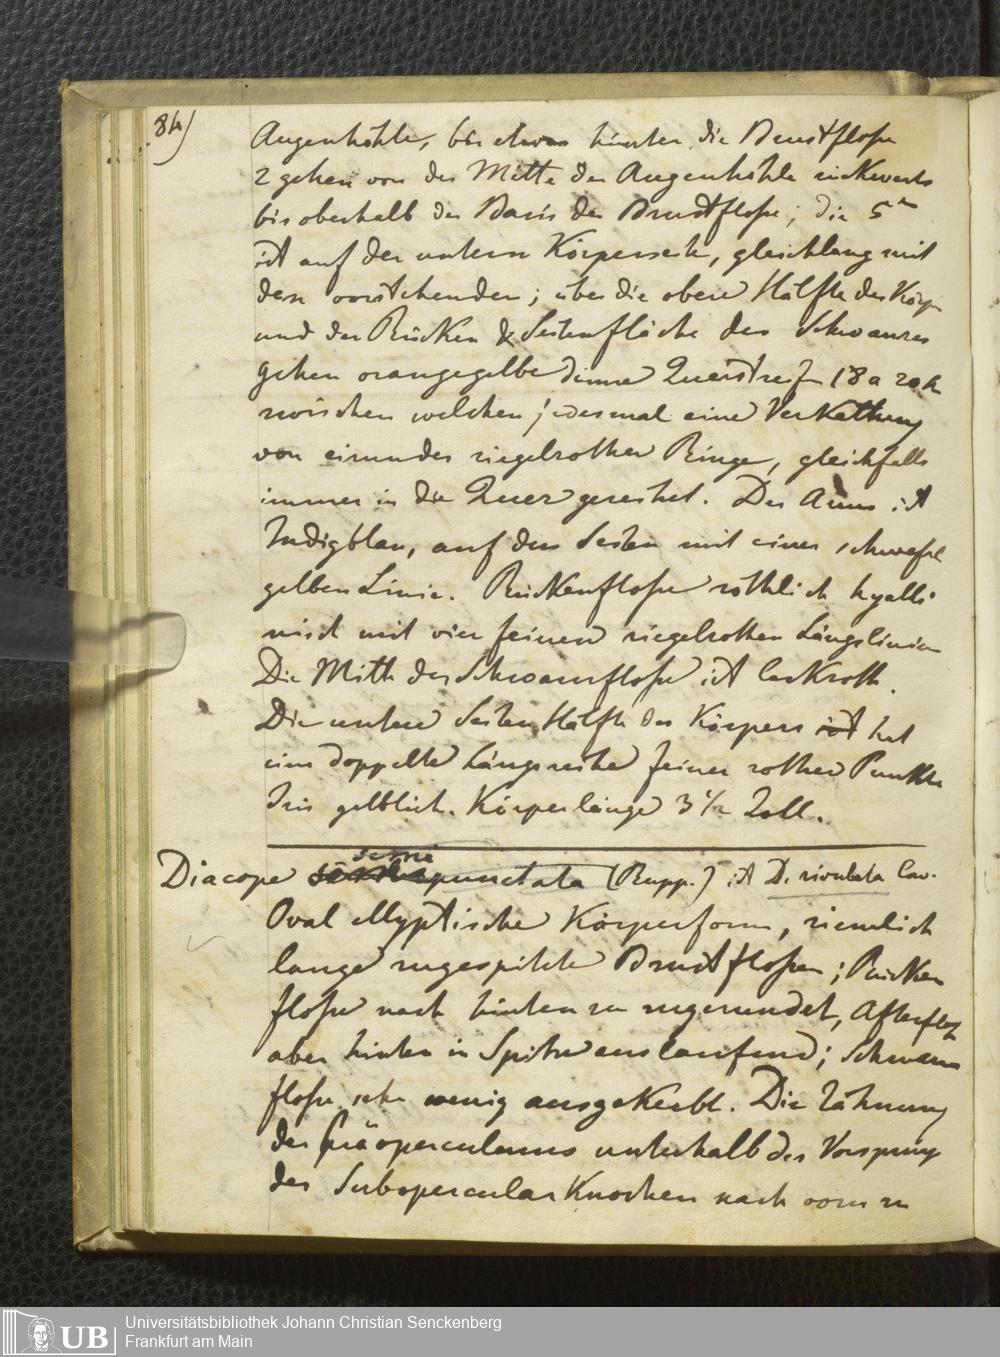 84)
Augenhöhle, bis etwas hinter die Brustflosse
2 gehen von der Mitte der Augenhöhle rückwerts
bis oberhalb der Basis der Brustflosse; die 5te
ist auf der untern Körperseite, gleichlang mit
den vorstehenden; über die obere Hälfte des Körp
und der Rücken & Seitenfläche des Schwanzes
gehen orangegelbe dünne Querstreifen 18 a 20
zwischen welchen jedesmal eine Verkettung
von eirunder ziegelrother Ringe, gleichfalls
immer in die Quer gereihet. Der Anus ist
Indigblau, auf den Seiten mit einer schwefel
gelben Linie. Rückenflosse röthlich hyalli
nisch mit vier feinen ziegelrothen Längslinien
Die Mitte der Schwanzflosse ist lackroth.
Die untere Seiten Hälfte des Körpers ist hat
eine doppelte Längsreihe feiner rother Punkte
Iris gelblich. Körperlänge 3 1/2 Zoll.
Diacope semipunctata (Rupp.) ist D. rivulata Cuv.
Oval ellyptische Körperform, ziemlich
lange zugespitzte Brustflossen; Rücken
flosse nach hinten zu zugerundet, Afterflosse
aber hinten in Spitze auslaufend; Schwanz
flosse sehr wenig ausgekerbt. Die Zähnung
des Präoperculums unterhalb des Vorsprungs
des Subopercular Knochen nach vorn zu
UB
Universitätsbibliothek Johann Christian Senckenberg
Frankfurt am Main